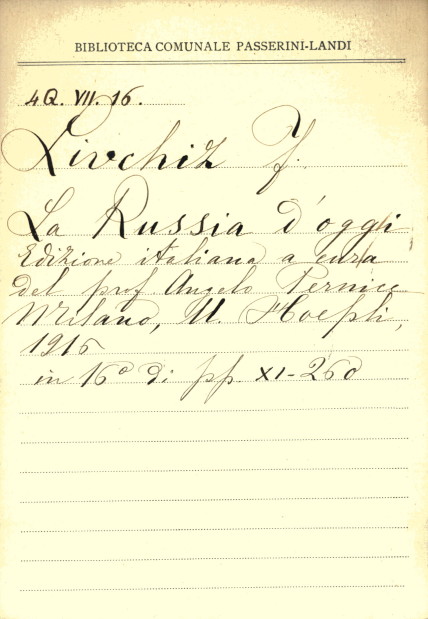 BIBLIOTECA COMUNALE PASSERINI-LANDI
4Q. VII. 16.
Livchiz J.
La Russia d'oggi
Edizione italiana a cura
del prof Angelo Pernice
Milano, U. Hoepli,
1916
in 16° di pp. XI-260